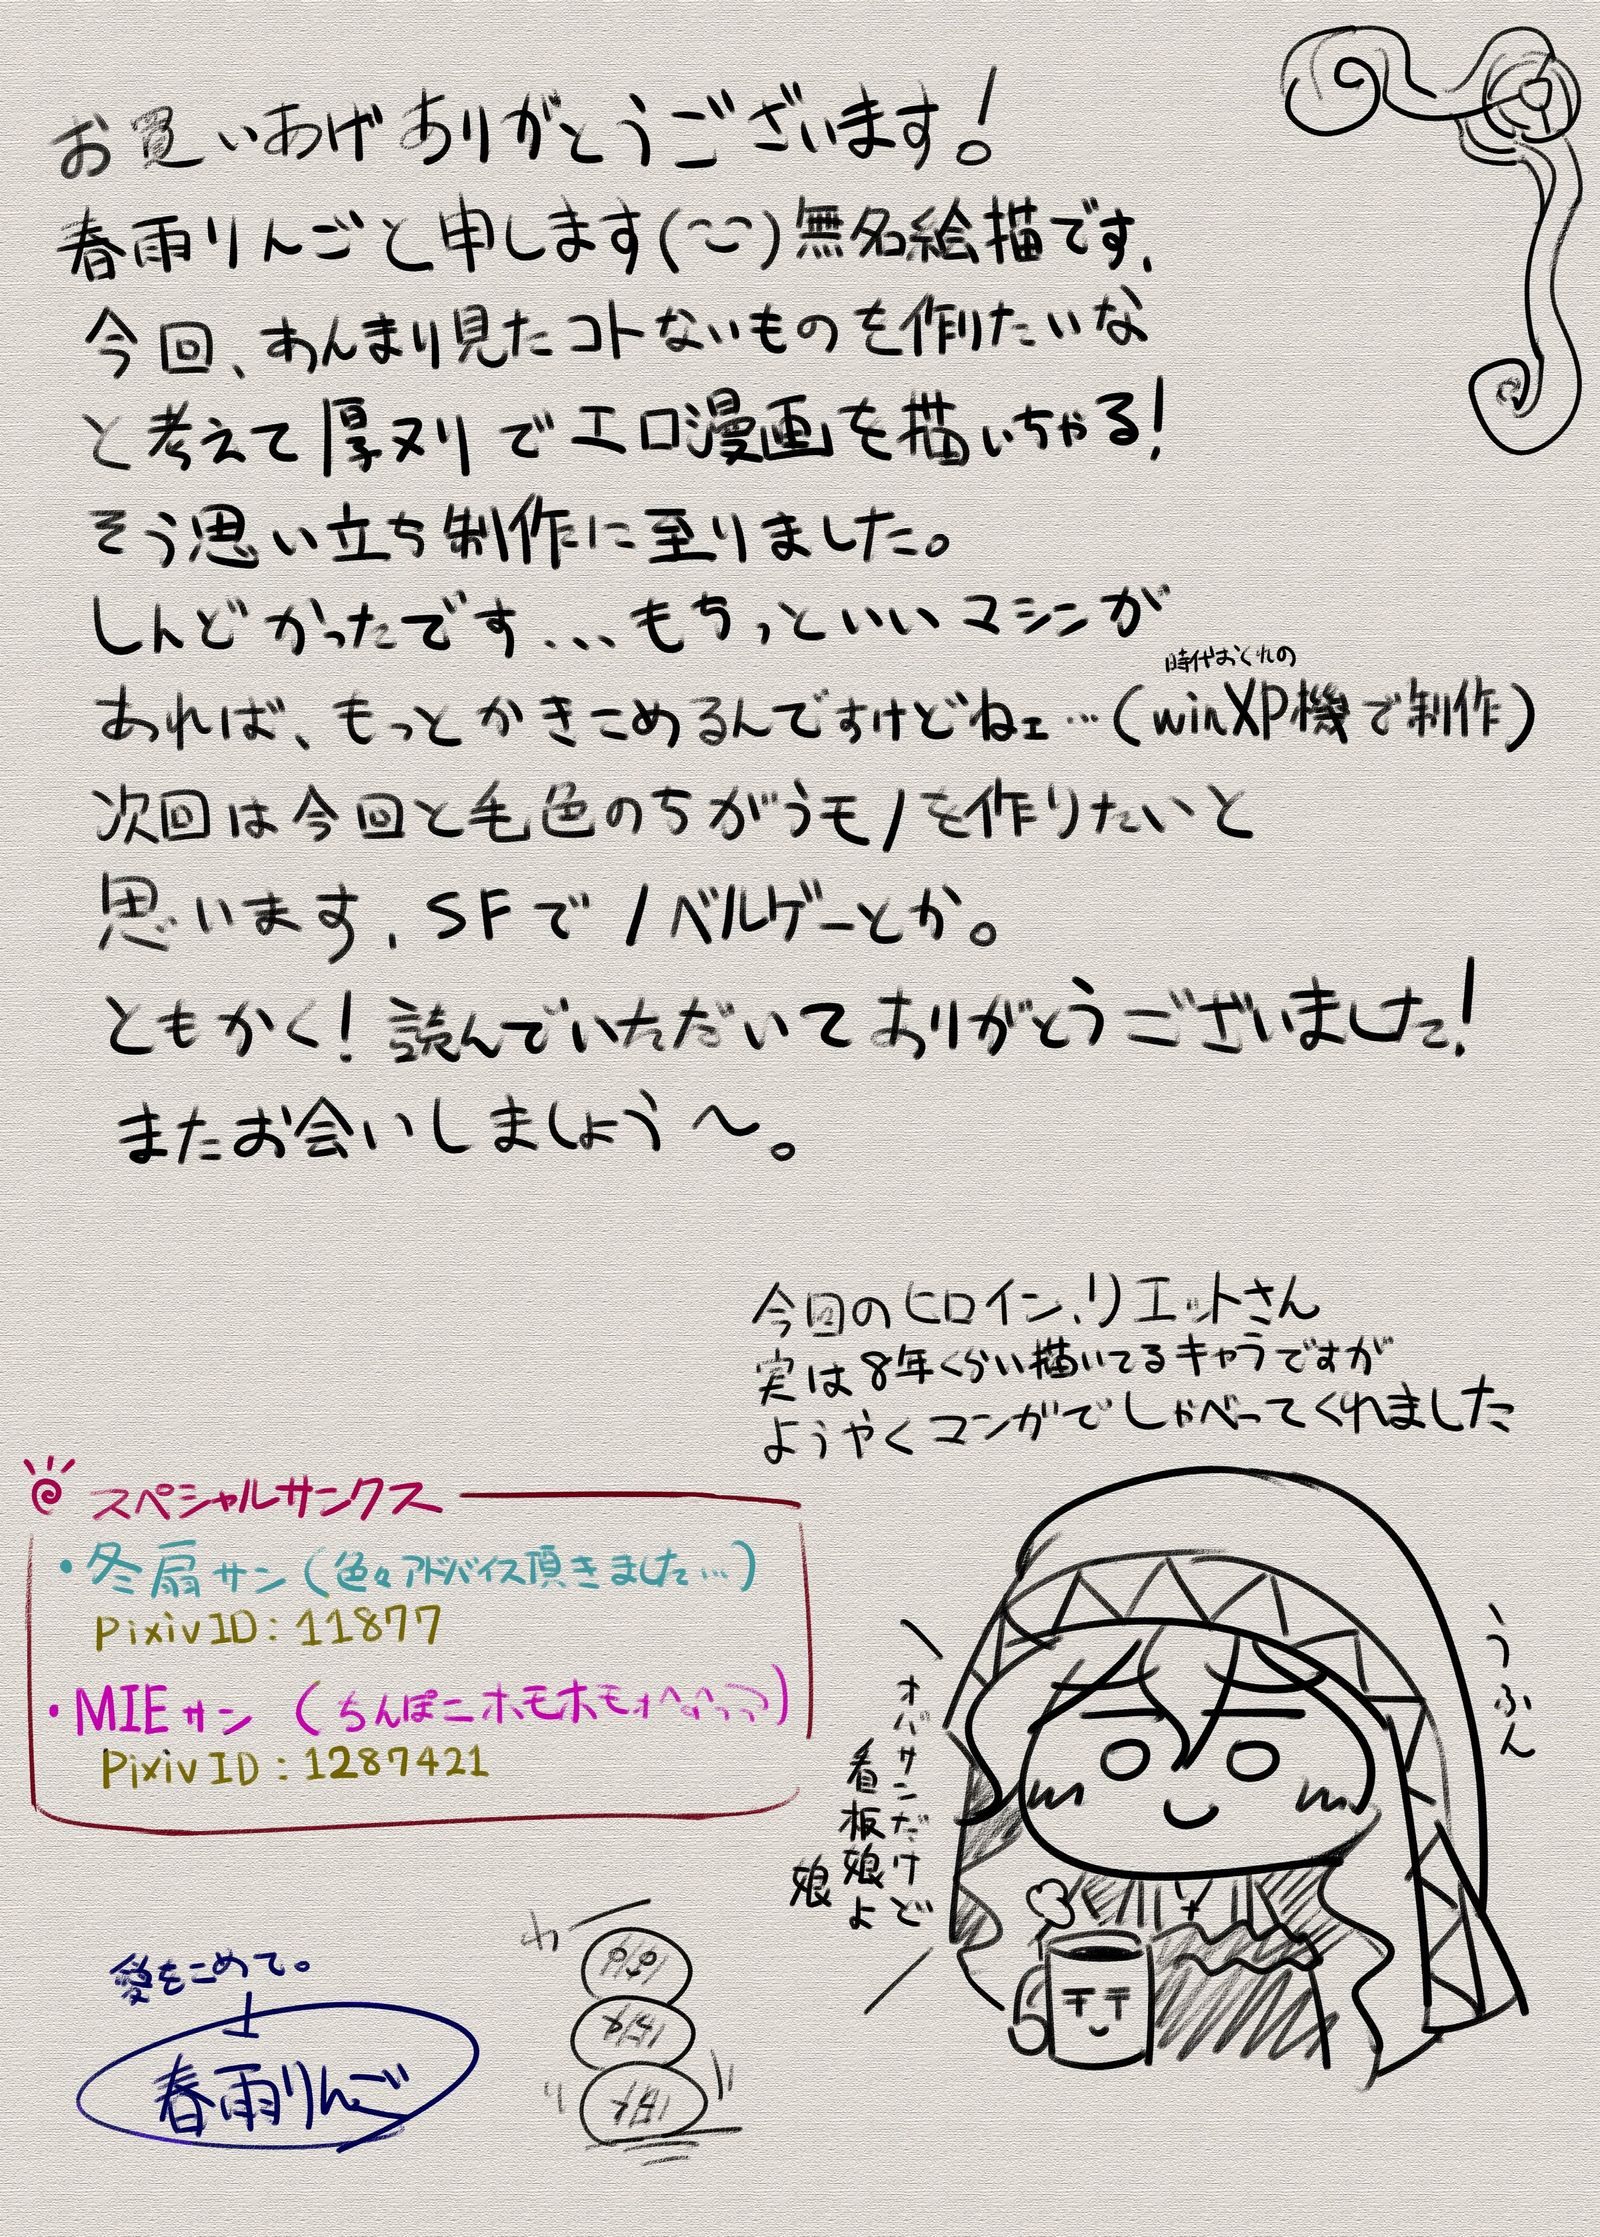 お買いあげありがとうございます！
春雨りんごと申します(^-^)無名絵描です、
今回、あんまり見たコトないものを作りたいな
と考えて厚ヌリでエロ漫画を描いちゃる！
そう思い立ち制作に至りました。
しんどかったです...もちっといいマシンが
あれば、もっとかきこめるんですけどねェ…(時代おくれのwinXP機で制作)
次回は今回と毛色のちがうモノを作りたいと
思います、SFでノベルゲーとか。
ともかく！読んでいただいてありがとうございました！
またお会いしましょう〜。
今回のヒロイン、リエットさん
実は8年くらい描いてるキャラですが
ようやくマンガでしゃべってくれました
スペシャルサンクス
・冬扇サン(色々アドバイス頂きました…)
PixivID：11877
・MIEサン(ちんぽニホモホモォ
PixivID：1287421
うふん
オバサンだけど
看板娘よ
娘
愛をこめて。
春雨りんご